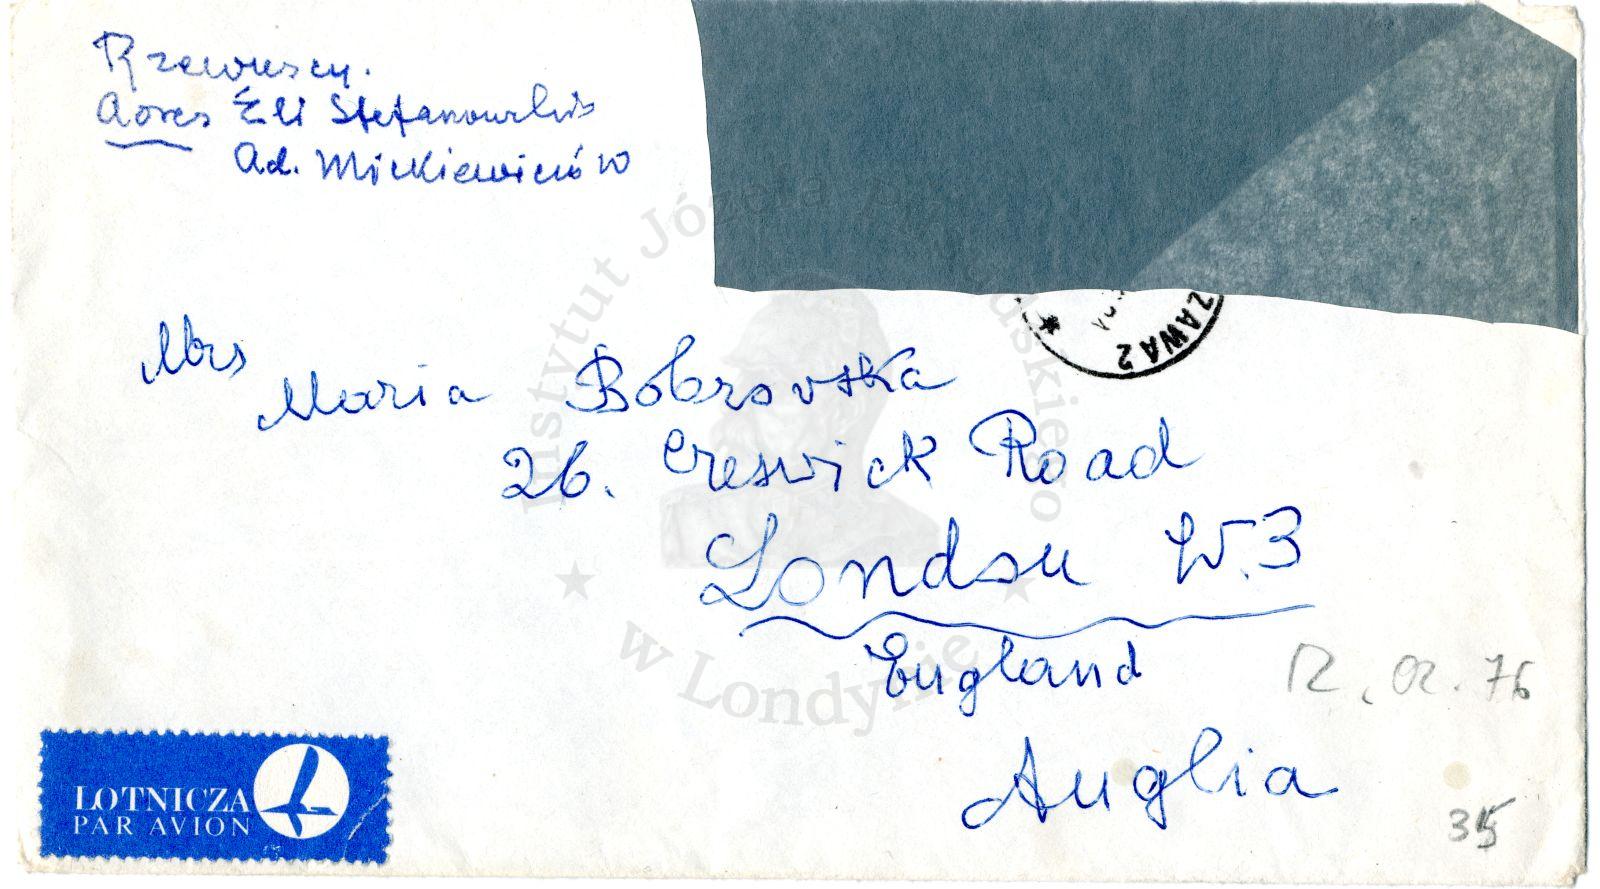 Rzewuscy.
Adres Eli Stefanowskiej
Ad. Mickiewiczów
Instytut Józefa Piłsudskiego
ZAWA 2
Mrs
Maria Bobrovska
26. Creswick Road
London W.3
England
w Londynie
Anglia
12.02.76
LOTNICZA
PAR AVION